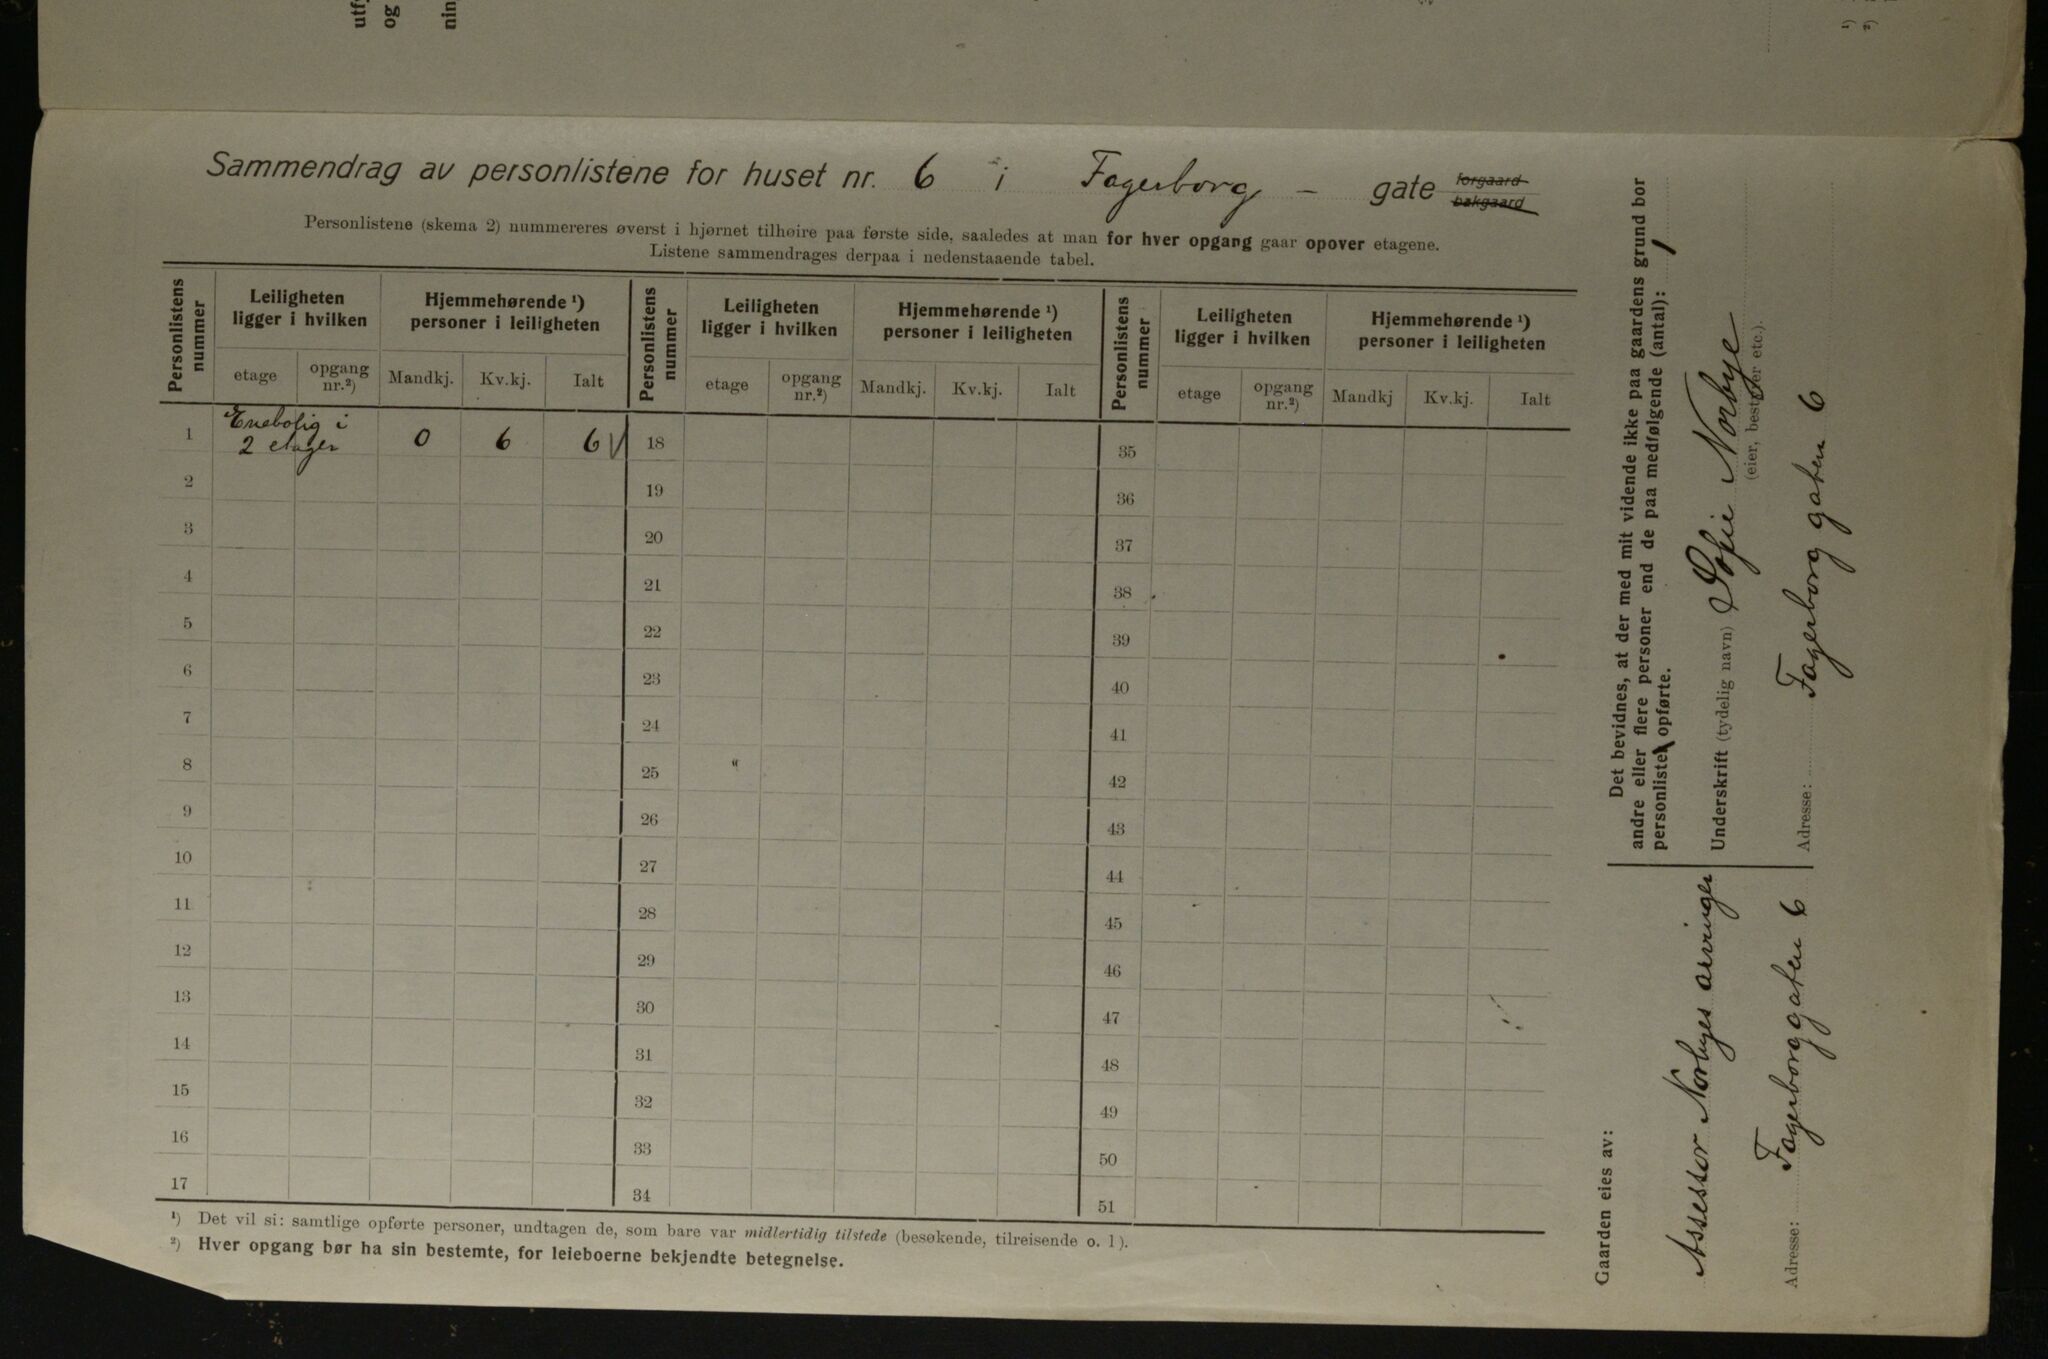 utfy
og
nin
¹)
²)
Sammendrag av personlistene for huset nr. 6 i Fagerborg – gate forgaard bakgaard
Personlistene (skema 2) nummereres øverst i hjørnet tilhøire paa første side, saaledes at man for hver opgang gaar opover etagene.
Listene sammendrages derpaa i nedenstaaende tabel.
Personlistens nummer | Leiligheten ligger i hvilken | Hjemmehørende ¹) personer i leiligheten | Personlistens nummer | Leiligheten ligger i hvilken | Hjemmehørende ¹) personer i leiligheten | Personlistens nummer | Leiligheten ligger i hvilken | Hjemmehørende ¹) personer i leiligheten
etage | opgang nr.²) | Mandkj. | Kv.kj. | Ialt | etage | opgang nr.²) | Mandkj. | Kv.kj. | Ialt | etage | opgang nr.²) | Mandkj | Kv.kj. | Ialt
1 Enebolig i 2 etager 0 6 6 √ 18 35
2 19 36
3 20 37
4 21 38
5 22 39
6 23 40
7 24 41
8 25 42
9 26 43
10 27 44
11 28 45
12 29 46
13 30 47
14 31 48
15 32 49
16 33 50
17 34 51
¹) Det vil si: samtlige opførte personer, undtagen de, som bare var midlertidig tilstede (besøkende, tilreisende o. l).
²) Hver opgang bør ha sin bestemte, for leieboerne bekjendte betegnelse.
Det bevidnes, at der med mit vidende ikke paa gaardens grund bor
andre eller flere personer end de paa medfølgende (antal): 1
personlister opførte.
Underskrift (tydelig navn) Sofie Norbye
(eier, bestyrer etc.).
Adresse: Fagerborg gaten 6
Gaarden eies av:
Assessor Norbyes arvinger
Adresse: Fagerborggaten 6